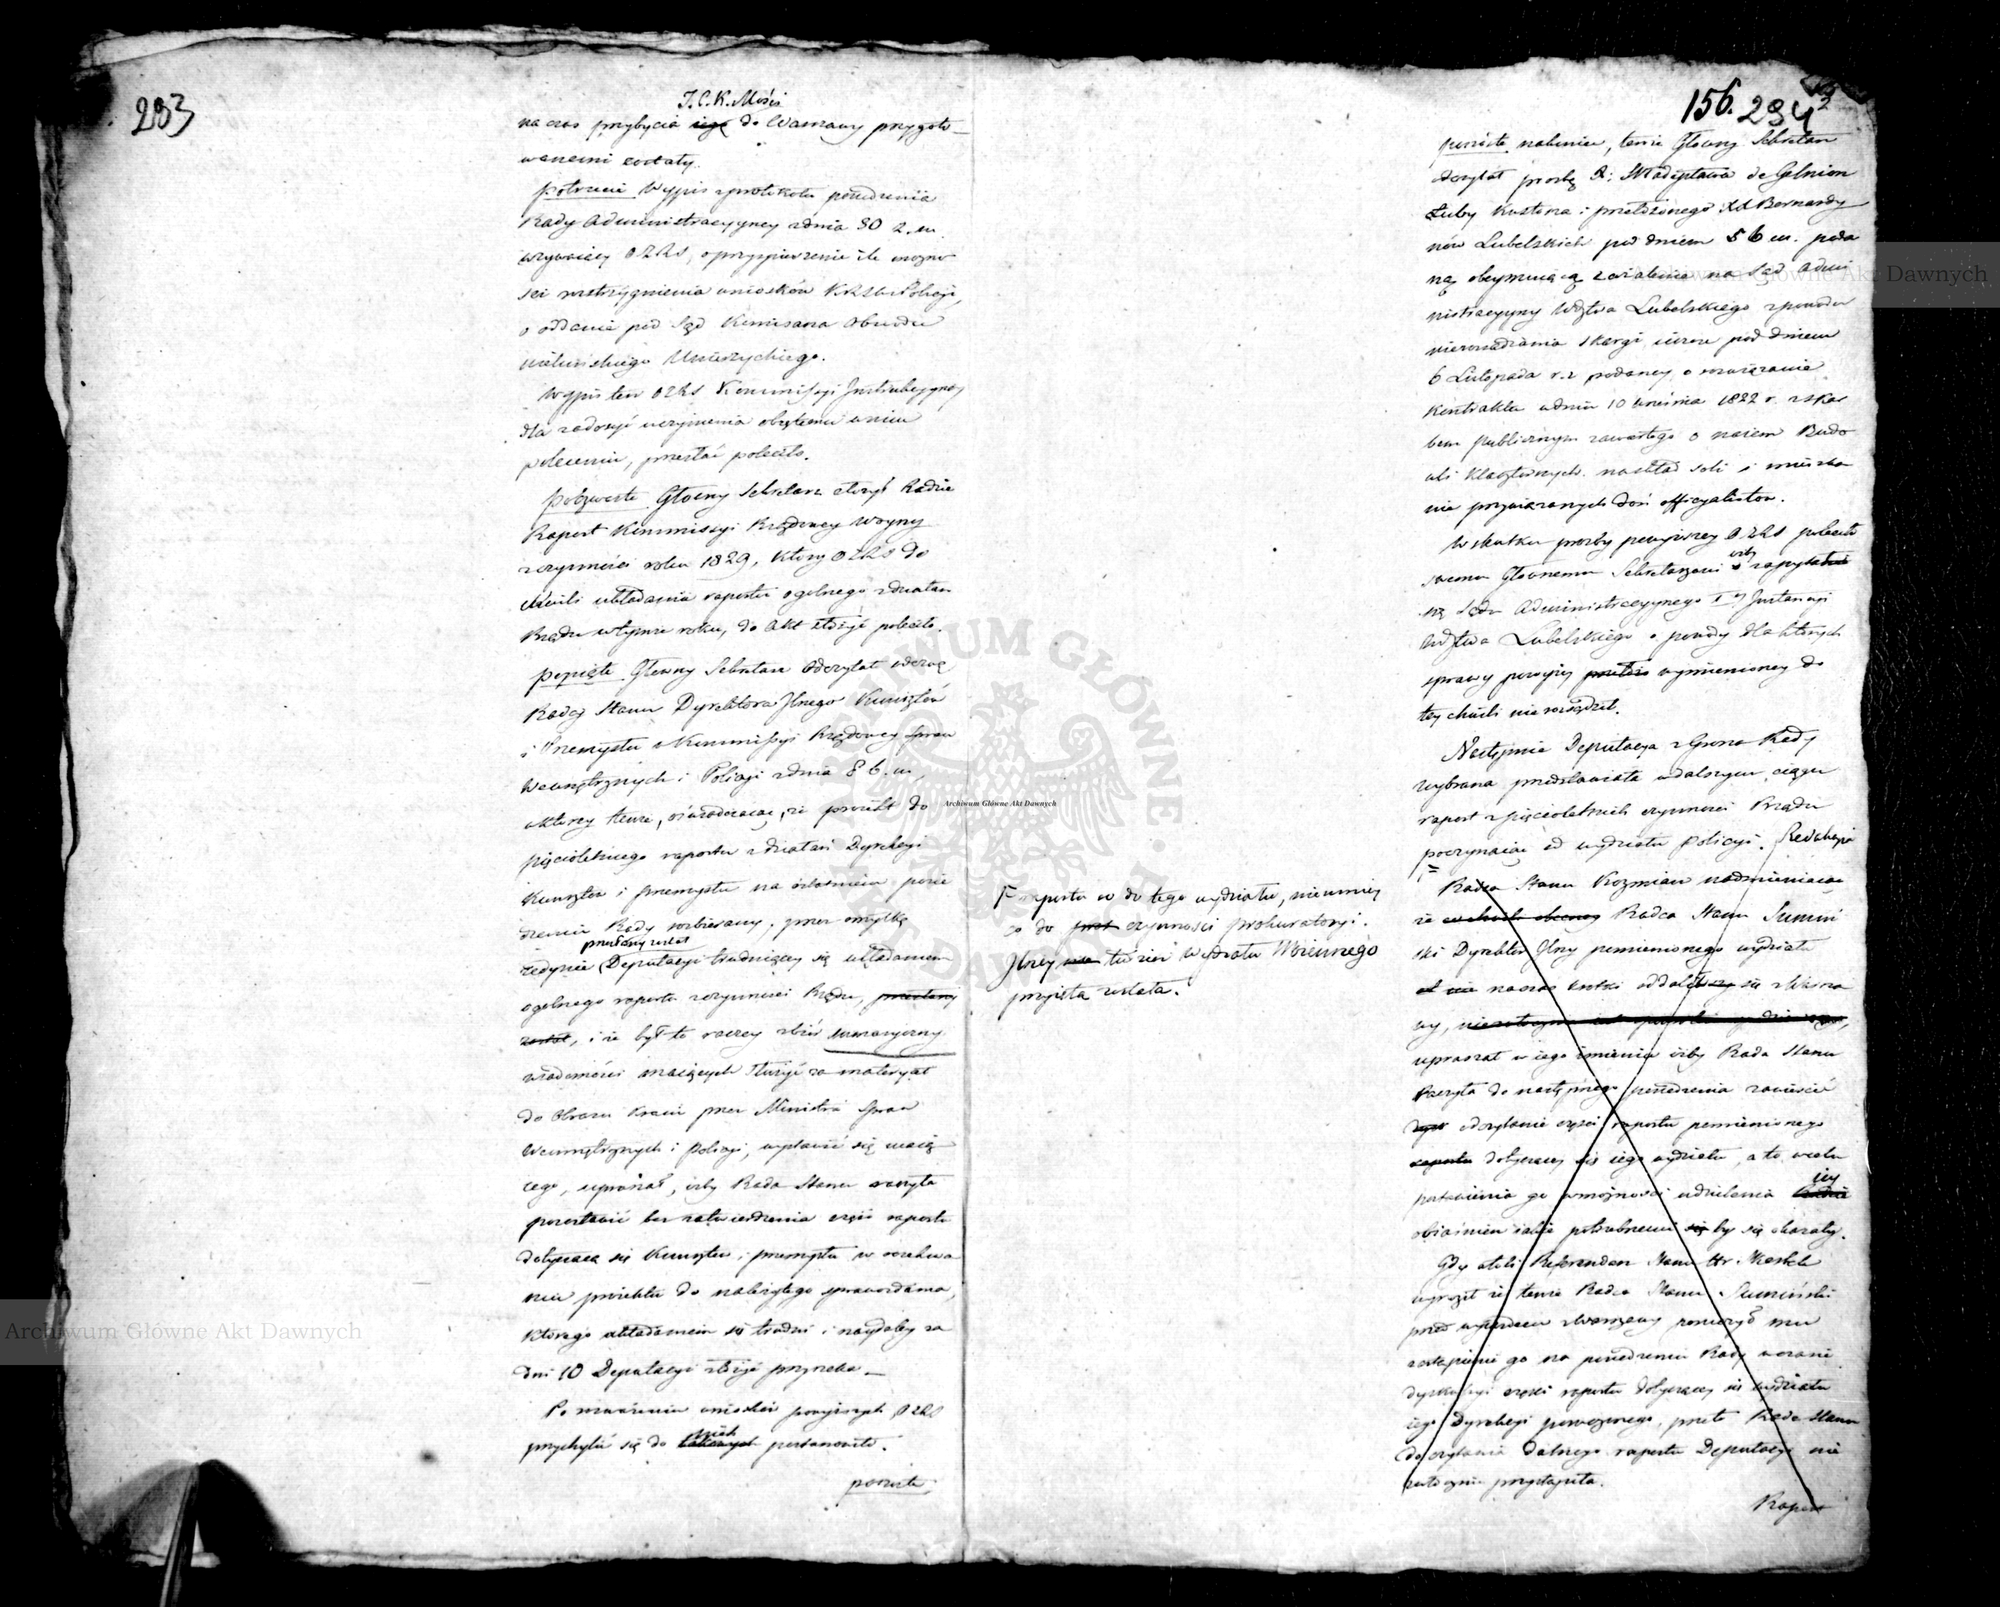 283
J. C. K. Mości
na czas przybycia iego do Warszawy przygoto-
wanemi zostały.
potrzecie Wypis z protokółu posiedzenia
Rady Administracyyney z dnia 30 z. m.
wzywaiący OZRS, o przyspieszenie ile możno-
ści rozstrzygnienia wniosków KRSW i Policyi,
o oddanie pod Sąd Kommissarza Obwodu
Wieluńskiego
Wypis ten OZRS Kommissyi Instrukcyyney
dla zadosyć uczynienia obiętemu w nim
poleceniu, przesłać poleciło.
poczwarte Główny Sekretarz złożył Radzie
Raport Kommissyi Rządowey Woyny
z czynności roku 1829, który OZRS do
chwili układania raportu ogólnego z działań
Rządu w tymże roku, do Akt złożyć poleciło.
popiąte Główny Sekretarz odczytał odezwę
Radcy Stanu Dyrektora Jlnego Kunsztów
i Przemysłu w Kommissyi Rządowey Spraw
Wewnętrznych i Policyi z dnia 8 b. m.
w którey tenże, oświadczaiąc, że proiekt do
pięcioletniego raportu z działań Dyrekcyi
Kunsztów i przemysłu na ostatniem posie-
dzeniu Rady rozbierany, przez omyłkę
przesłany został
iedynie Deputacyi trudniącey się układaniem
ogólnego raportu z czynności Rządu, przesłany
został, i że był to raczey zbiór
wiadomości maiących służyć za materyał
do Obrazu Kraiu przez Ministra Spraw
Wewnętrznych i Policyi, wystawić się maią-
cego, upraszał, iżby Rada Stanu raczyła
pozostawić bez zatwierdzenia część raportu
dotyczącą się Kunsztów i przemysłu w oczekiwa-
niu proiektu do należytego sprawozdania,
którego układaniem się trudni i naydaley za
dni 10 Deputacyi złożyć przyrzeka.
Po rozważeniu wniosków powyższych OZRS
nich
przychylić się do takowych postanowiło.
poszóste
raportu co do tego wydziału, niemniey
co do czynności Prokuratoryi
Jlney tudzież Wydziału Woiennego
przyięta została.
156. 284
2
poszóste nakoniec, tenże Główny Sekretarz
odczytał prośbę X: Władysława de Gielniow
Łuby Kustosza i przełożonego XX Bernardy-
nów Lubelskich pod dniem 5 b. m. poda-
ną obeymuiącą zażalenie na Sąd Admi-
nistracyyny Wdztwa Lubelskiego z powodu
nierozsądzenia skargi ieszcze pod dniem
6 Listopada r. z. podaney o rozwiązanie
kontraktu w dniu 10 Września 1822 r. z skar-
bem publicznym zawartego o naiem Budo-
wli klasztornych na skład soli i mieszka-
nie przywiązanych doń officyalistów.
W skutku prośby powyższey OZRS poleciło
iżby
swemu Głównemu Sekretarzowi zapytał
się Sądu Administracyynego I Instancyi
Wdztwa Lubelskiego o powody dla których
sprawy powyżey wymienioney do
tey chwili nie rozsądził.
Następnie Deputacya z Grona Rady
wybrana przedstawiała w dalszym ciągu
raport z pięcioletnich czynności Rządu
poczynaiąc od wydziału Policyi. Redakcya
Radca Stanu Kozmian nadmieniaiąc
że Radca Stanu Sumiń-
ski Dyrektor Jlny pomienionego wydziału
na czas krótki oddalił się z Warsza-
wy,
upraszał w iego imieniu iżby Rada Stanu
raczyła do następnego posiedzenia zawiesić
odczytanie części raportu pomienionego
raportu dotyczącey się iego wydziału, a to w celu
iey
postawienia go w możności udzielenia Radzie
obiaśnień iakie potrzebnemi by się okazały.
Gdy atoli Referendarz Stanu Hr. Skarbek
wyraził iż tenże Radca Stanu Sumiński
przed wyiazdem z Warszawy poruczył mu
zastąpienie go na posiedzeniu Rady w czasie
dyskussyi części raportu dotyczącey się wydziału
iego Dyrekcyi powierzonego, przeto Rada Stanu
do czytania dalszego raportu Deputacyi nie-
zwłocznie przystąpiła.
Raport
Archiwum Główne Akt Dawnych
Archiwum Główne Akt Dawnych
Archiwum Główne Akt Dawnych
ARCHIWUM GŁÓWNE AKT DAWNYCH